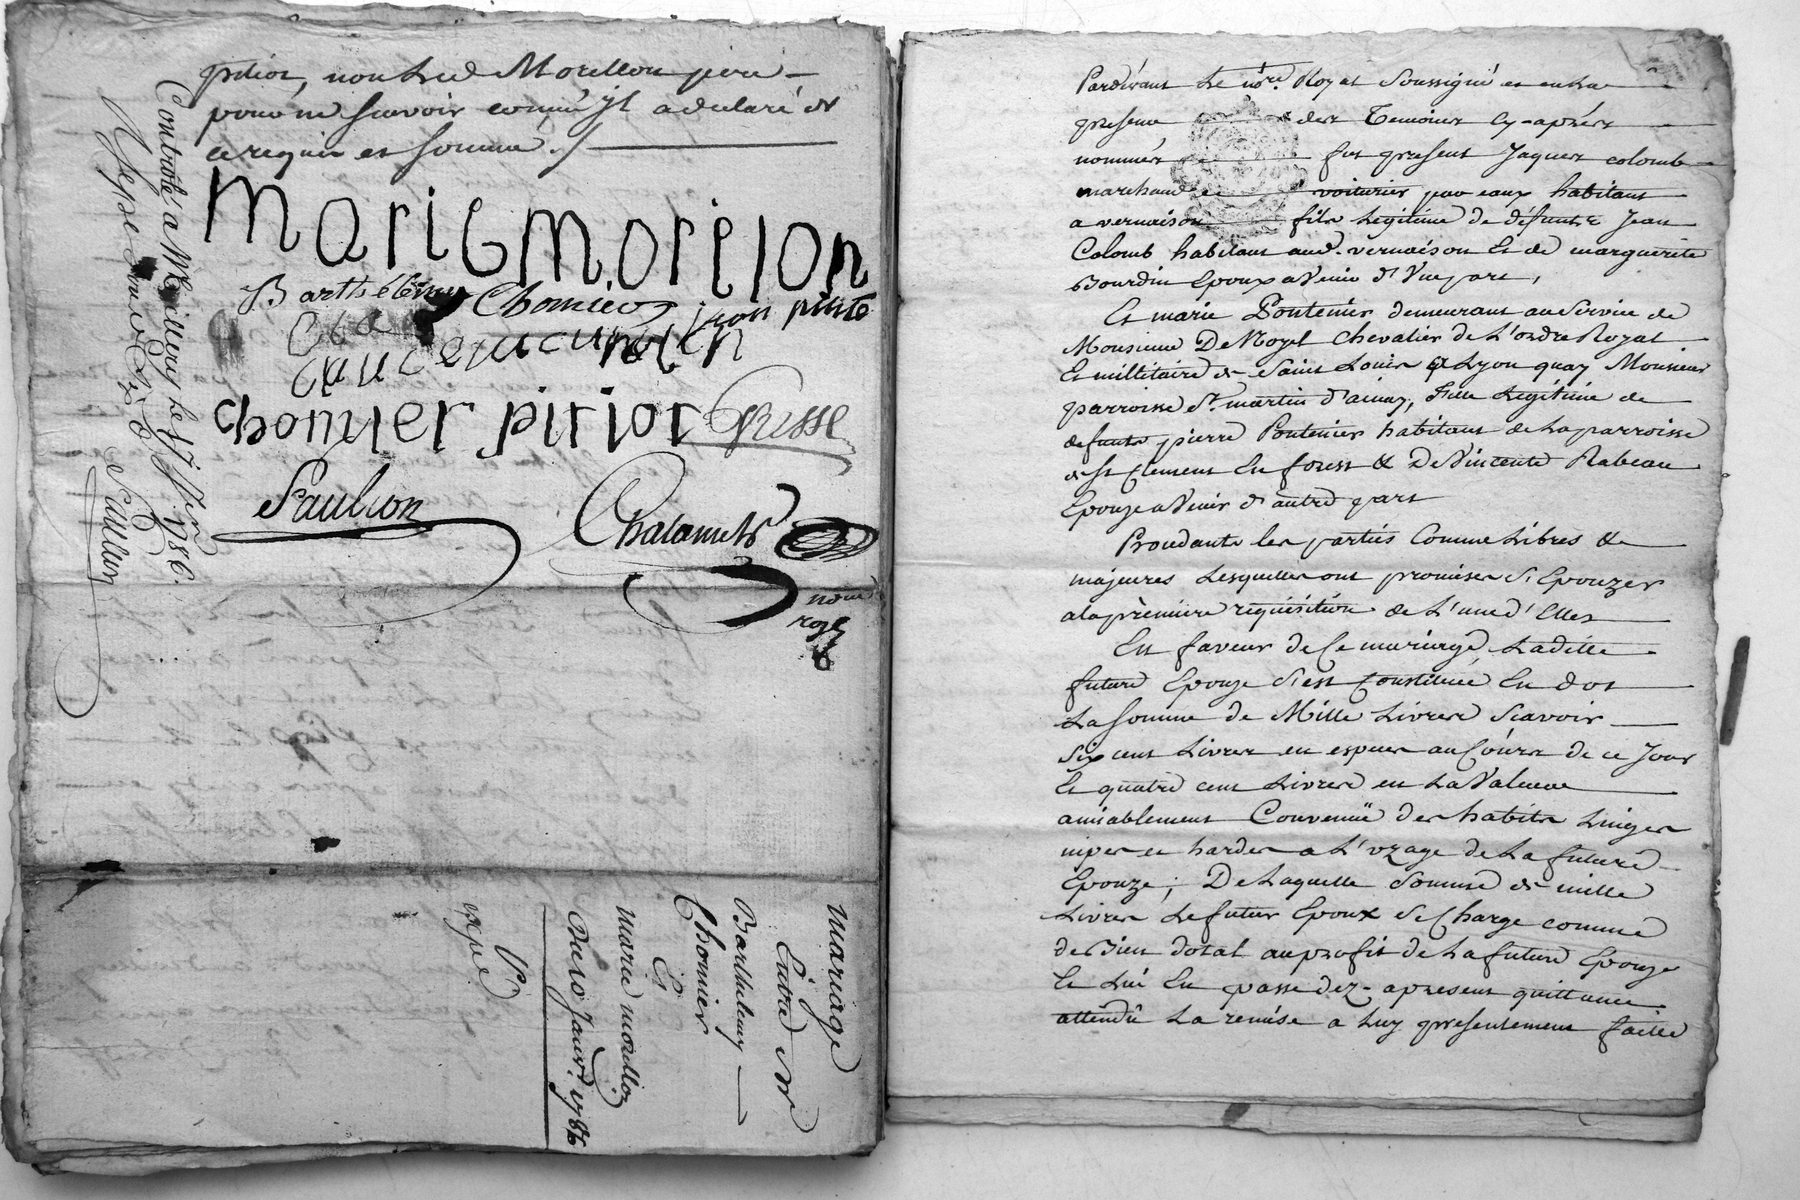 pitiot, non led Morellon pere
pour ne scavoir comm'jl a declaré de
ce requis et sommé ./.
Marie Morelon
Barthelemy Chomier jean pirite
chomier pitiot Grisse
Saulnon
Chalamets
nore
royl
Controlé a Millery le 17 jer 1786.
Saulnon
mariage
Entre sr
Barthelemy
Chomier
Et
marie morellon
Du 10 Janvr. 1786
Expé
Pardevant Le nore. Royal Soussigné et en La
presence des Temoins cy-aprés
nommés fut present Jaques colomb
marchand voiturier par eaux habitant
a vernaison fils Legitime de défunt Jean
Colomb habitant aud. vernaison Et de marguerite
Bourdin Epoux a Venir d'Une part,
Et marie Pontenier demeurant au Service de
Monsieur De Noyel Chevalier de L'ordre Royal
Et millitaire de Saint Louis a Lyon quay Monsieur
parroisse St. martin d'ainay, Fille Legitime de
defunt pierre Pontenier habitant de La parroisse
de St Clement En forest & De Vincente Rabeau
Epouze a Venir d'autre part
Procedants les parties Comme Libres &
majeures Lesquelles ont promises S'Epouzer
a la prèmiere requisition de L'une d'Elles
En faveur de Ce mariage Laditte
future Epouze S'est Constituée En dot
La somme de Mille Livres Scavoir
Six cent Livres en especes au Cours de ce Jour
Et quatre cent Livres en La Valeur
amiablement Convenüe des habits Linges
nipes et hardes a L'uzage de La future
Epouze; De Laquelle Somme de mille
Livres Le futur Epoux Se Charge comme
de Bien dotal au profit de La future Epouze
Et Lui En passe dez-apresent quittance
attendû La remise a Luy presentement faitte